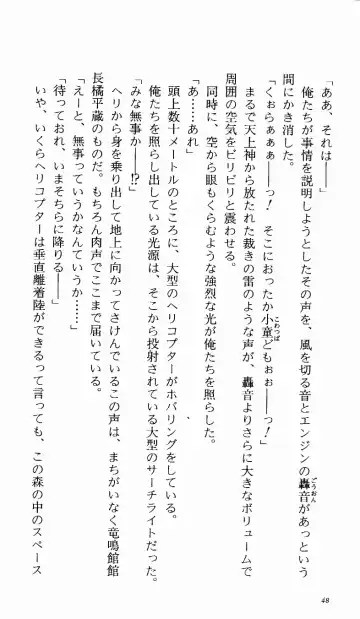 「ああ、それは――」
俺たちが事情を説明しようとしたその声を、風を切る音とエンジンの轟音があっという
間にかき消した。
「くぉらぁぁぁ――っ！　そこにおったか小童どもぉぉ――っ！」
まるで天上神から放たれた裁きの雷のような声が、轟音よりさらに大きなボリュームで
周囲の空気をビリビリと震わせる。
同時に、空から眼もくらむような強烈な光が俺たちを照らした。
「あ……あれ」
頭上数十メートルのところに、大型のヘリコプターがホバリングをしている。
俺たちを照らし出している光源は、そこから投射されている大型のサーチライトだった。
「みな無事か――!?」
ヘリから身を乗り出して地上に向かってさけんでいるこの声は、まちがいなく竜鳴館館
長橘平蔵のものだ。もちろん肉声でここまで届いている。
「えーと、無事っていうかなんていうか……」
「待っておれ、いまそちらに降りる――」
いや、いくらヘリコプターは垂直離着陸ができるって言っても、この森の中のスペース
ごうおん
こわっぱ
48